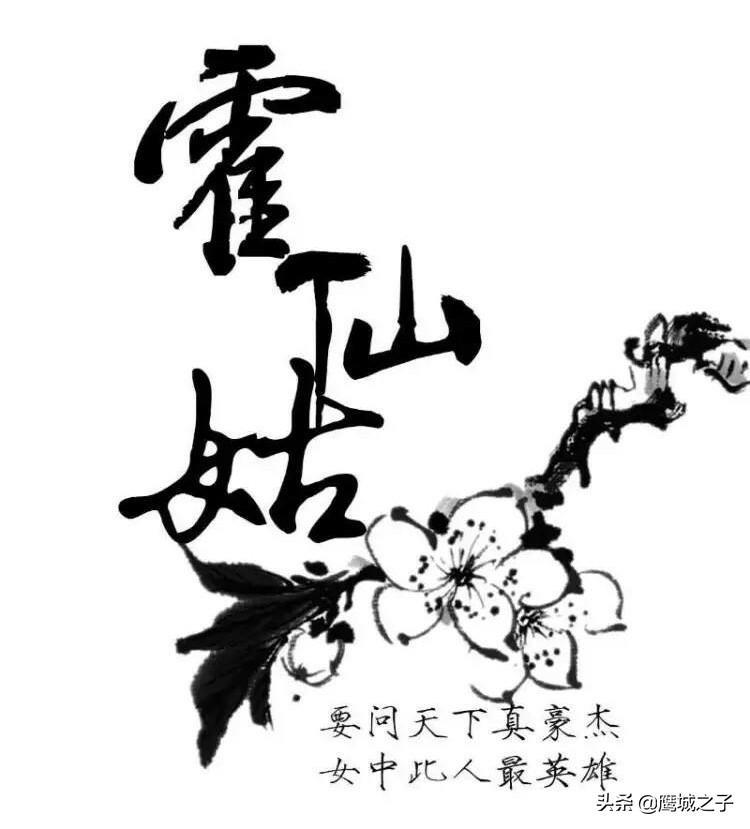 霍
仙
姑
要问天下真豪杰
女中此人最英雄
头条 @鹰城之子